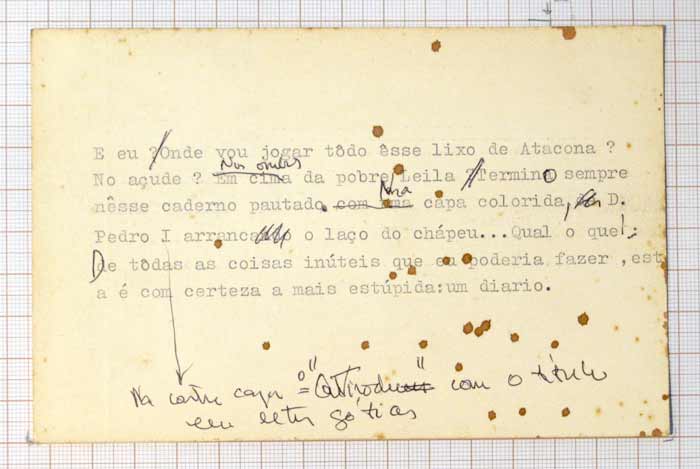 E eu ? Onde vou jogar tôdo êsse lixo de Atacona ?
Nos ombros
No açude ? Em cima da pobre Leila ? Termino sempre
Na
nêsse caderno pautado. com uma capa colorida, D.
Pedro I arranca o o laço do chápeu...Qual o que!
De tôdas as coisas inúteis que eu poderia fazer ,est
a é com certeza a mais estúpida:um diario.
Na contra capa = o " " com o título
em letras góticas